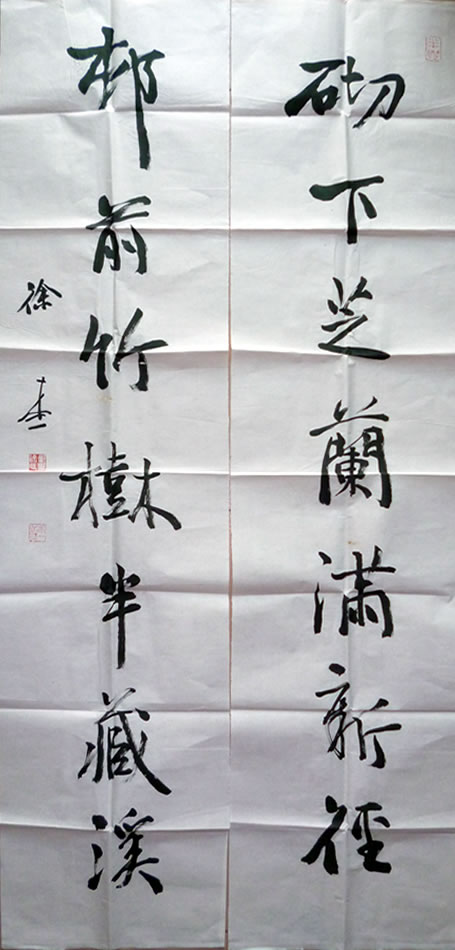 砌下芝蘭滿新徑
邨前竹樹半藏溪
徐本一